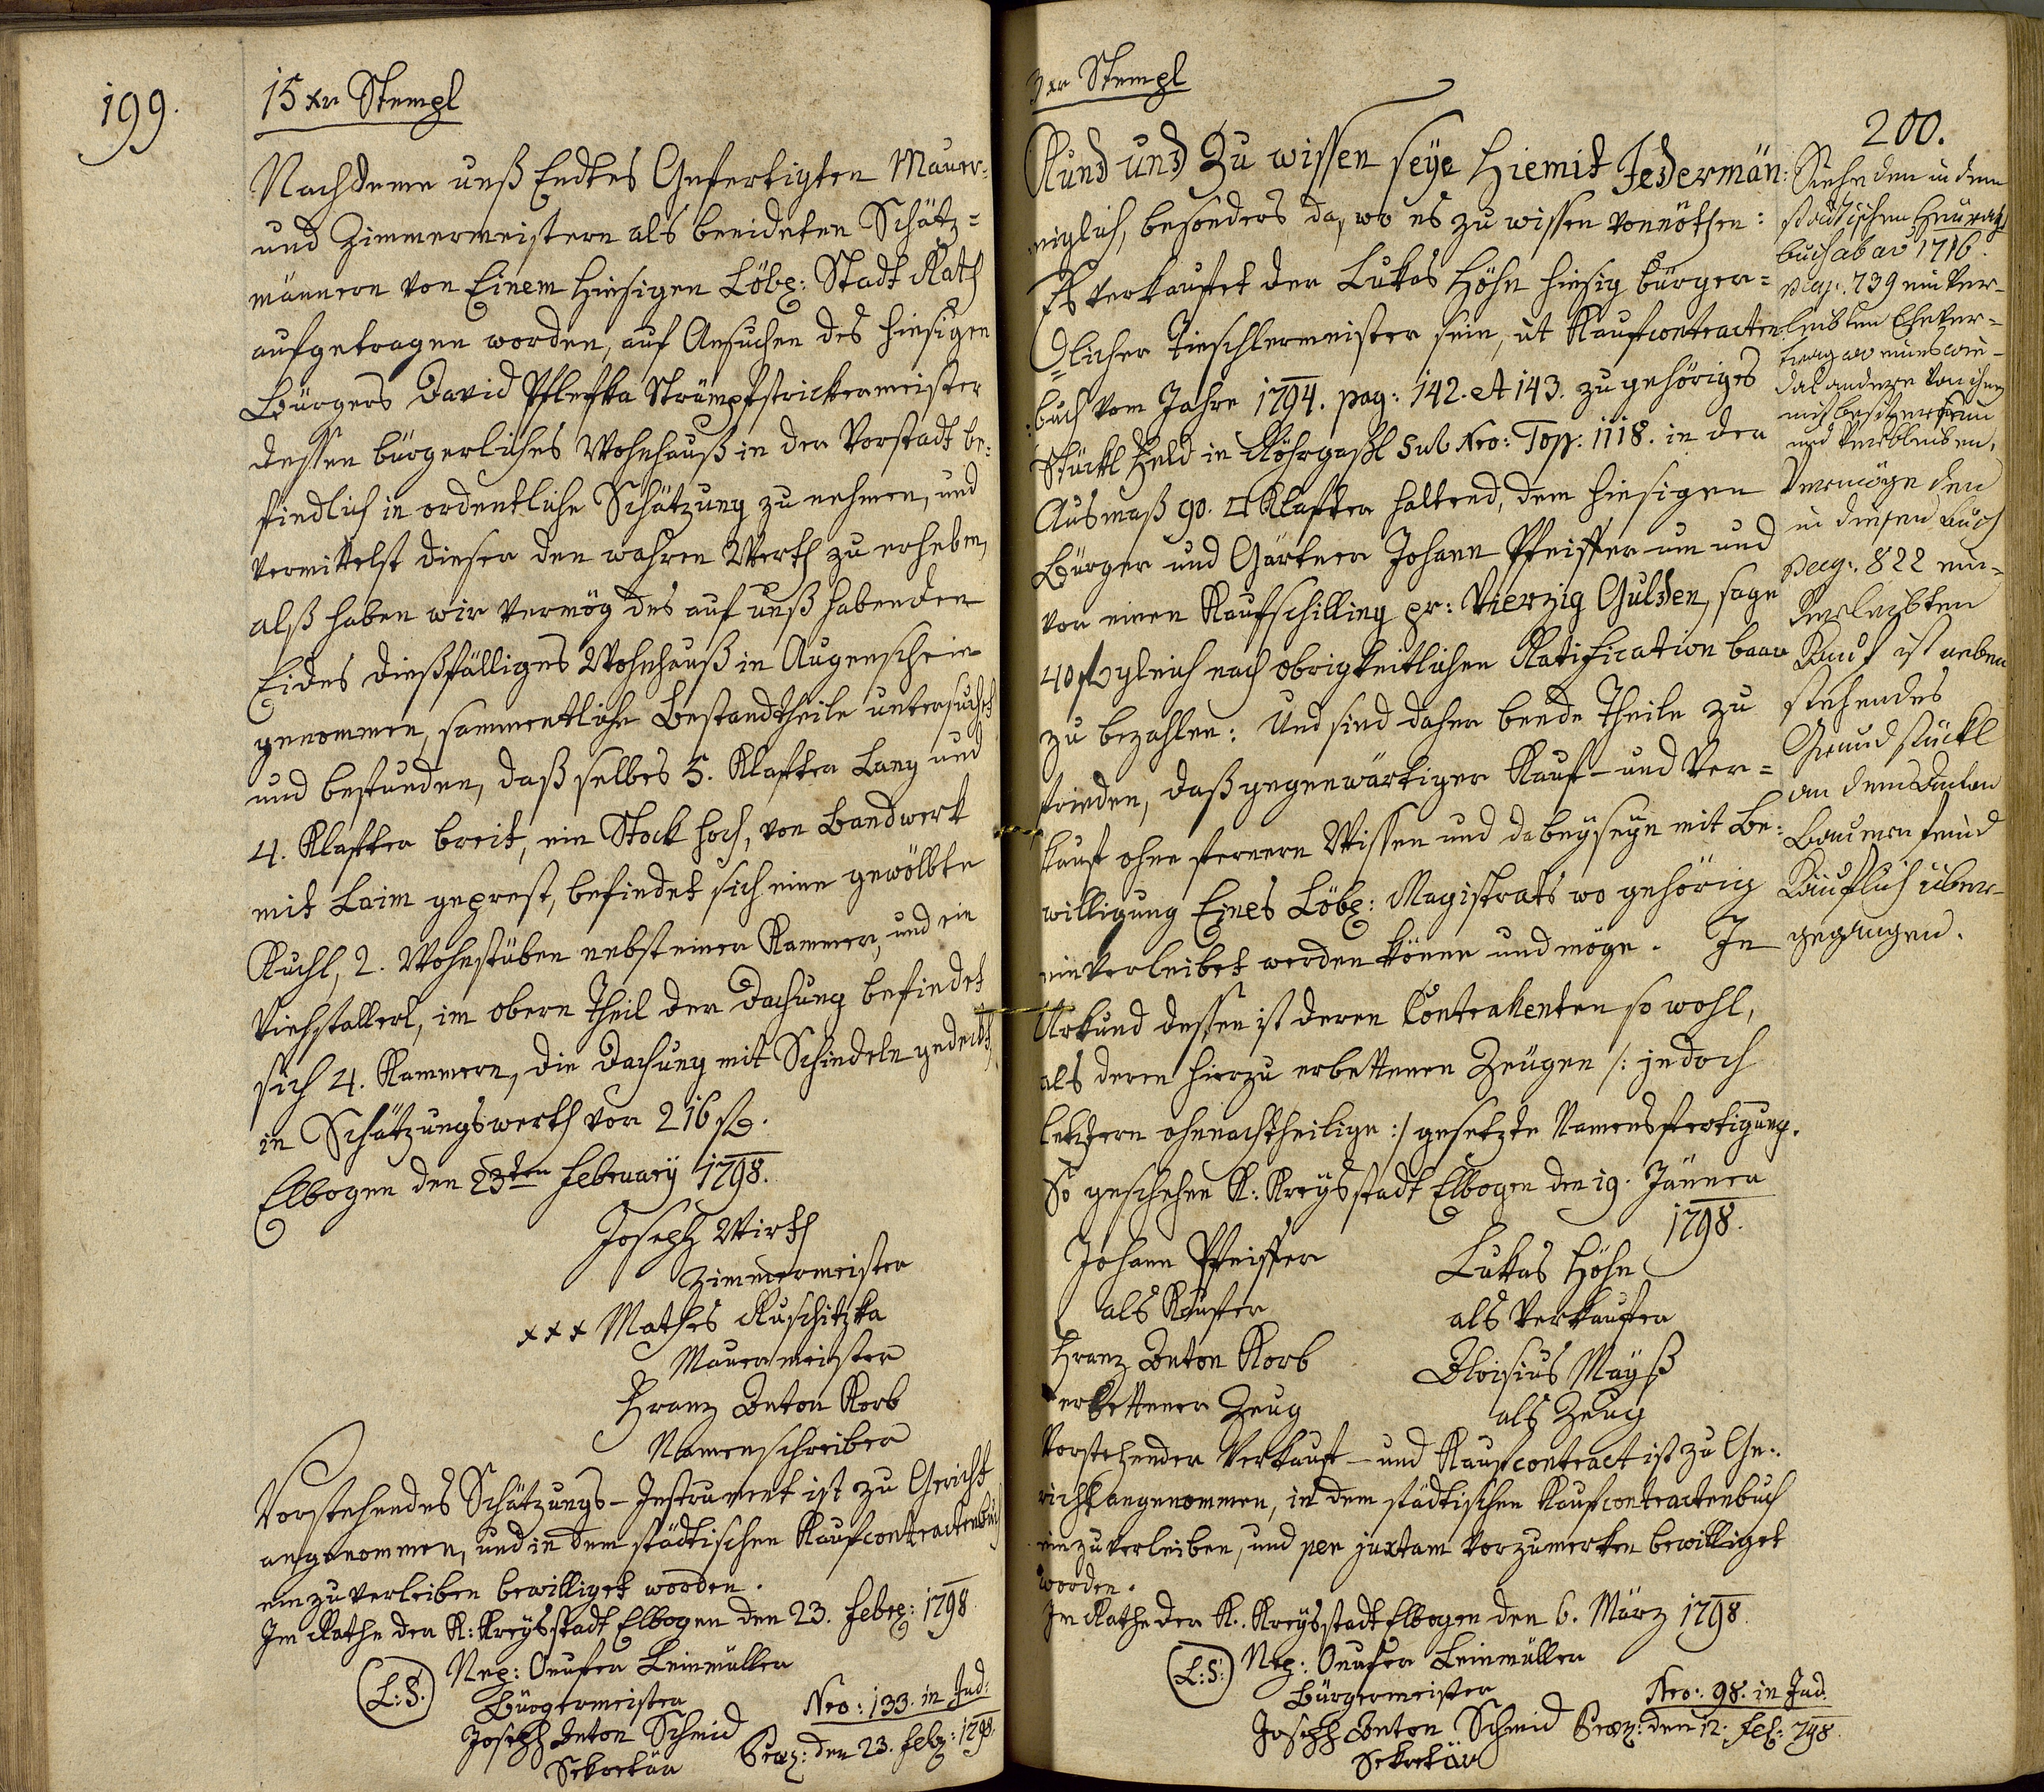 199.
15 xr Stempl
Nachdeme unß Endtes Gefertigten Maurer-
und Zimmermeistern als beeideten Schätz=
männern von Einem hiesigen Löbl: Stadt Rath
aufgetragen worden, auf Ansuchen des hiesigen
Bürgers David Strümpfstrickermeister
dessen bürgerliches Wohnhauß in der Vorstadt be=
findlich in ordentliche Schätzung zu nehmen, und
vermittelst dieser den wahren Werth zu erheben,
alß haben wir vermög des auf unß habenden
Eides dießfälliges Wohnhauß in Augenschein
genommen, sammentliche Bestandtheile untersucht
und befunden, daß selbes 5. Klafter Lang und
4. Klafter breit, ein Stock hoch, von Bandwerk
mit Laim geprest, befindet sich eine gewölbte
Kuchl, 2. Wohnstüben nebst einer Kammer, und ein
Viehstallerl, im obern Theil der Dachung befindet
sich 4. Kammern, die Dachung mit Schindeln gedeckt,
in Schätzungswerth vor 216 fl.
Elbogen den 23ten February 1798.
Joseph Wirth
Zimmermeister
xxx Mathes Ruschitzka
Maurermeister
Franz Anton Korb
Namenschreiber
Vorstehendes Schätzungs-Instrument ist zu Gericht
angenommen, und in dem städtischen Kaufcontractenbuch
einzuverleiben bewilliget worden.
Im Rathe der K: Kreysstadt Elbogen den 23. Febr: 1798
(L:S.) Nep: Onufer Leinmüller
Bürgermeister
Joseph Anton Schmid
Sekretär
Nro: 133. in Jud:
Præs: den 23. Feb: 1798.
3 xr Stempl
200.
Kund und Zu wissen seye Hiemit Jedermän:
niglich, besonders da, wo es zu wissen vonnöthen:
Es verkaufet der Lukas Höhn hiesig bürger=
licher Tieschlermeister sein, ut Kaufcontracten
buch vom Jahre 1794. pag: 142. et 143. zugehöriges
Stückl Feld in Röhrgaßl sub Nro: Top: 1118. in der
Ausmaß 90. □ Klafter haltend, dem hiesigen
Bürger und Gärtner Johann Pfeiffer um und
vor einen Kaufschilling pr: Vierzig Gulden, sage
40 fl gleich nach obrigkeitlichen Ratification baar
zu bezahlen: Und sind daher beede Theile zu
frieden, daß gegenwärtiger Kauf- und Ver=
kauf ohne fernern Wissen und dabeyseyn mit Be:
willigung Eines Löbl: Magistrats wo gehörig
einverleibet werden könne und möge. In
Urkund dessen ist deren Contrahenten so wohl,
als deren hierzu erbettenen Zeugen /: jedoch
letztern ohnnachtheilige :/ gesetzte Namensfertigung.
So geschehen K: Kreysstadt Elbogen den 19. Jänner
1798.
Johann Pfeiffer
als Käufer
Lukas Höhn
als Verkaufer
Franz Anton Korb
erbettener Zeug
Aloisius Mayß
als Zeug
Vorstehender Verkauf- und Kaufcontract ist zu Ge:
richt angenommen, in dem städtischen Kaufcontractenbuch
einzuverleiben, und per juxtam vorzumerken bewilliget
worden.
Im Rathe der K. Kreysstadt Elbogen den 6. März 1798.
(L:S:) Nep: Onufer Leinmüller
Bürgermeister
Joseph Anton Schmid
Sekretär
Nro: 98. in Jud:
Præs: den 12. Feb: 798.
Siehe den in dem
städtischen Heurath
buch ab ao 1716.
pag. 739 einver-
leibten Ehever-
trag
das andere von ihnen
mitbesitzer seyn
und verbleiben.
Vermöge den
in diesem Buch
pag. 822 ein-
verleibten
Kauf ist neben
stehendes
Grundstückl
an den Anton
Käuflich über-
gegangen.